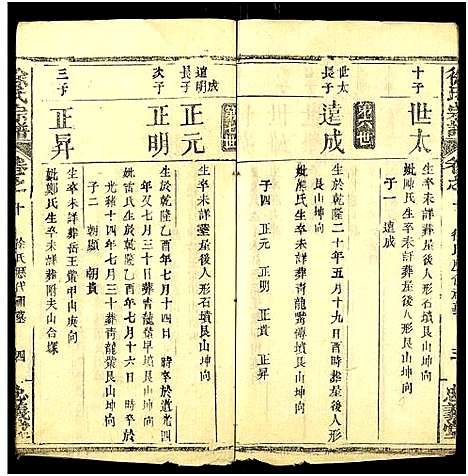 徐氏宗譜
卷之一
三
忠義堂
十子
世太
生卒未詳葬屋後人形石墳艮山坤向
妣陳氏生卒未詳葬屋後人形
子一 達成
第六世
世太長子
達成
生於乾隆二十年五月十九日酉時葬屋後人形
艮山坤向
妣熊氏生卒未詳葬青龍嘴傅墳艮山坤向
子四 正元 正明 正貴 正昇
第七世
達成長子
正元
生卒未詳葬屋後人形石墳艮山坤向
次子
正明
生於乾隆乙酉年七月十四日 時卒於道光四
年七月三十日葬青龍葉早墳艮山坤向
妣雷氏生於乾隆乙酉年七月十六日 時卒於
光緒十四年七月三十葬青龍葉艮山坤向
子二 朝顯 朝貴
三子
正昇
生卒未詳葬岳王嘴甲山庚向
妣鄭氏生卒未詳葬附夫山合塚
徐氏宗譜
卷之一
徐氏歷代祖墓
四
忠義堂